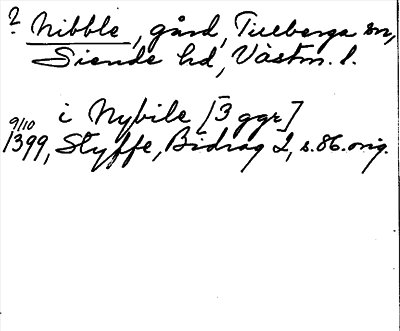 ? Nibble, gård, Tillberga sn,
Siende hd, Västm. l.
i Nybile [3 ggr]
9/10 1399, Styffe, Bidrag 2, s. 86. orig.